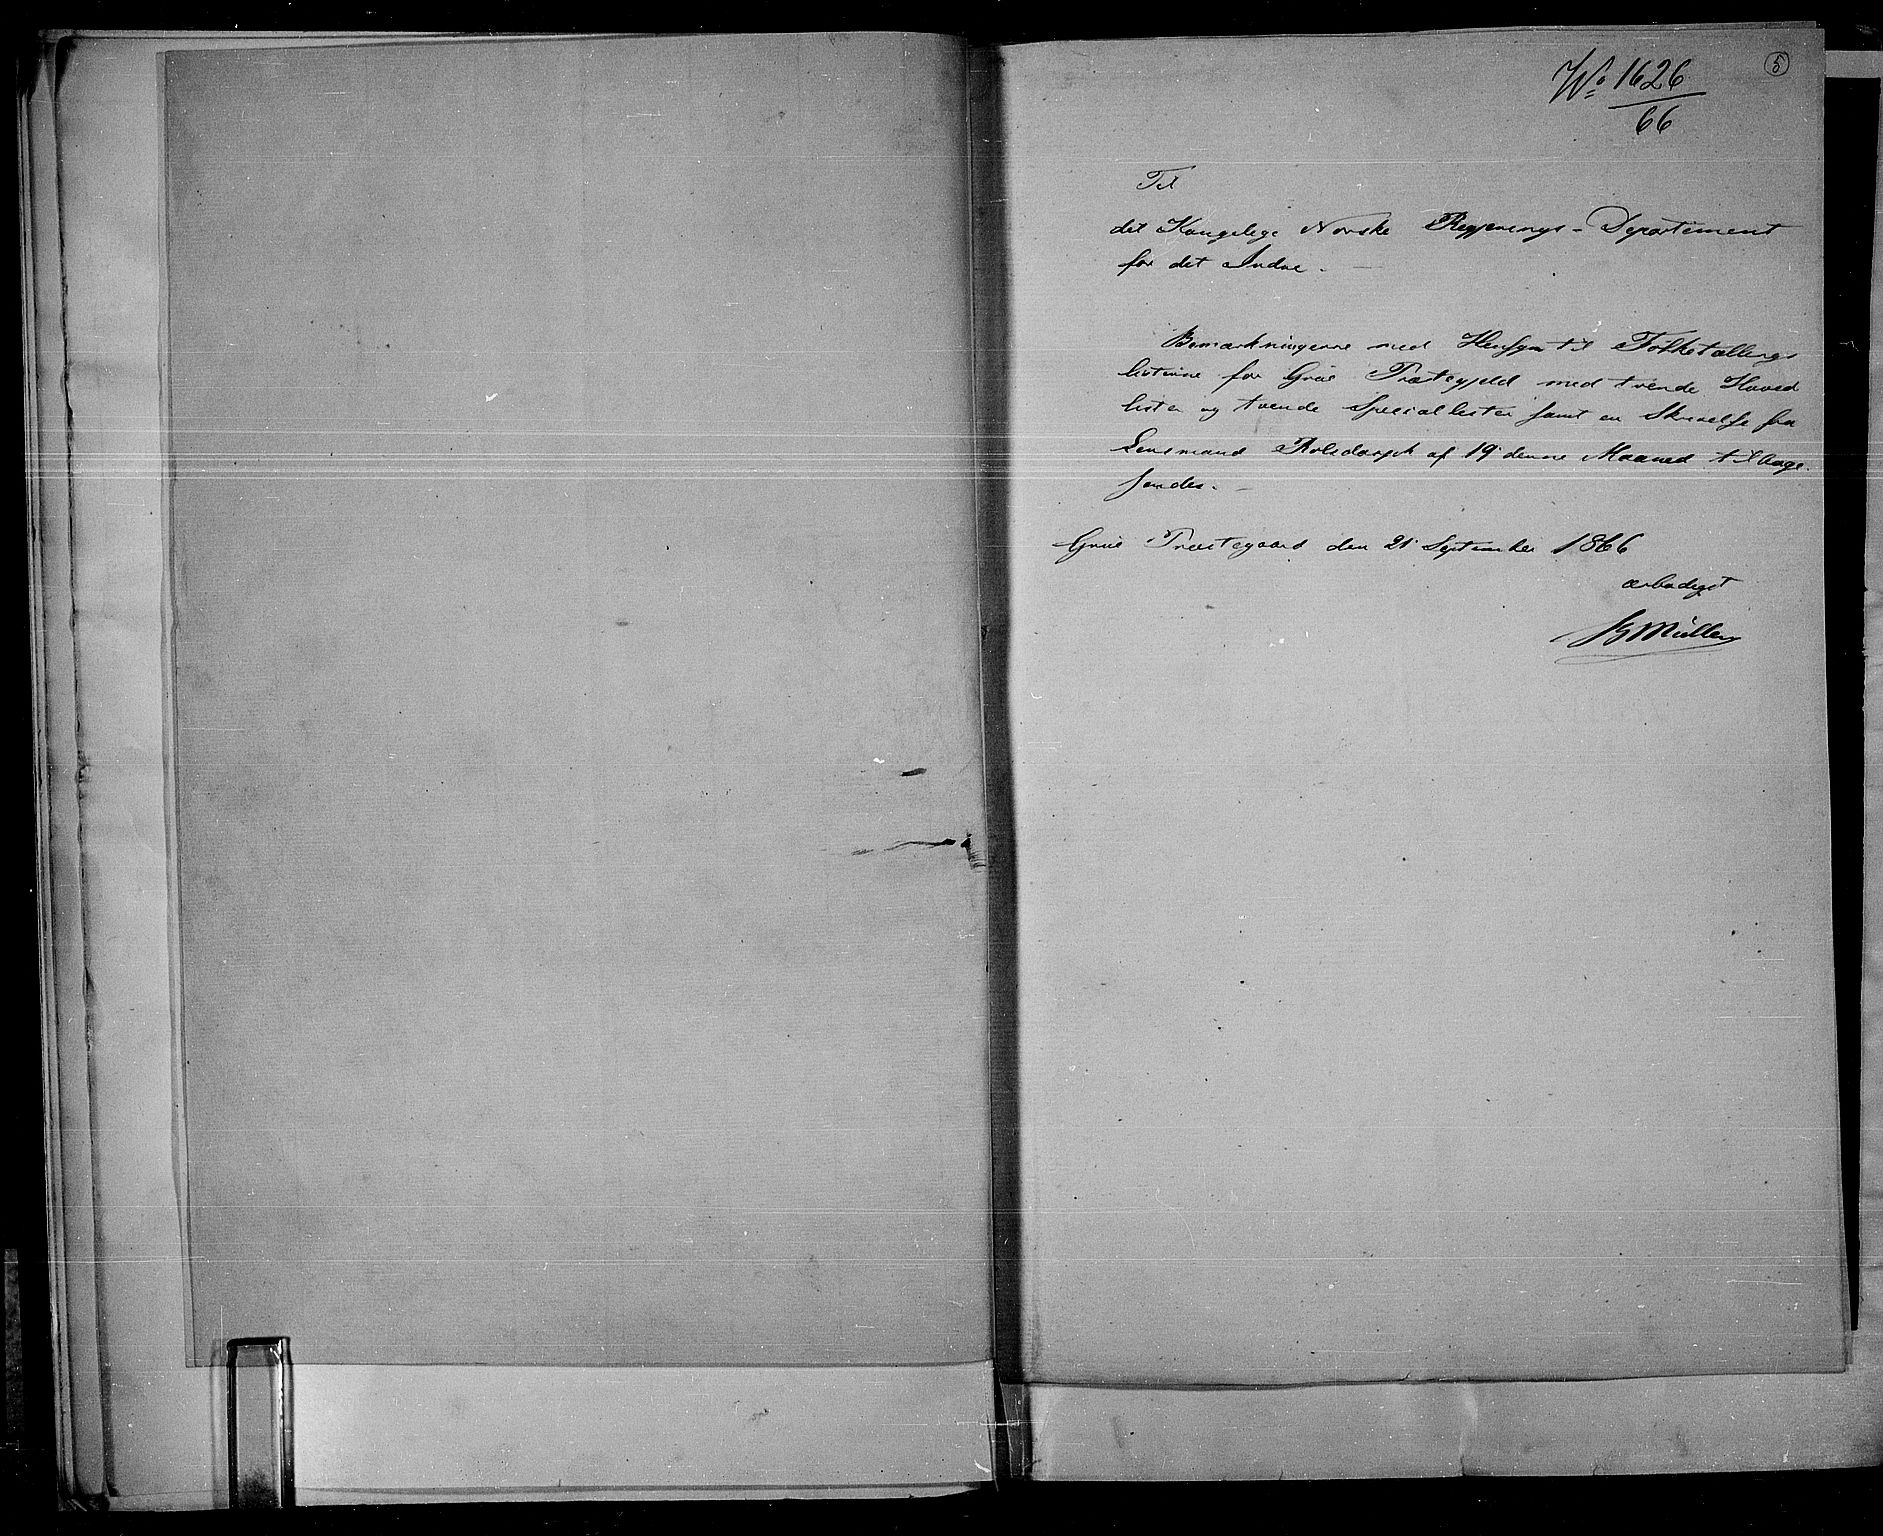 5
No 1626
66
Til
det Kongelige Norske Regjerings-Departement
for det Indre.
Bemærkningerne med Hensyn til Folketællings
listerne for Grue Præstegjeld med tvende Hoved
lister og tvende Speciallister samt en Skrivelse fra
Lensmand af 19 denne Maaned tilbage
sendes.
Grue Præstegaard den 21 September 1866
ærbødigst
Müller